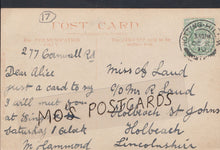 17
POST CARD
277 Cornwall Rd
Dear Alice
just a card to say
I will meet you
at
Saturday 1 o'clock
M Hammond
Miss A Laud
C/o Mrs R Laud
Holbeach St Johns
Holbeach
Lincolnshire
MOS POSTCARDS